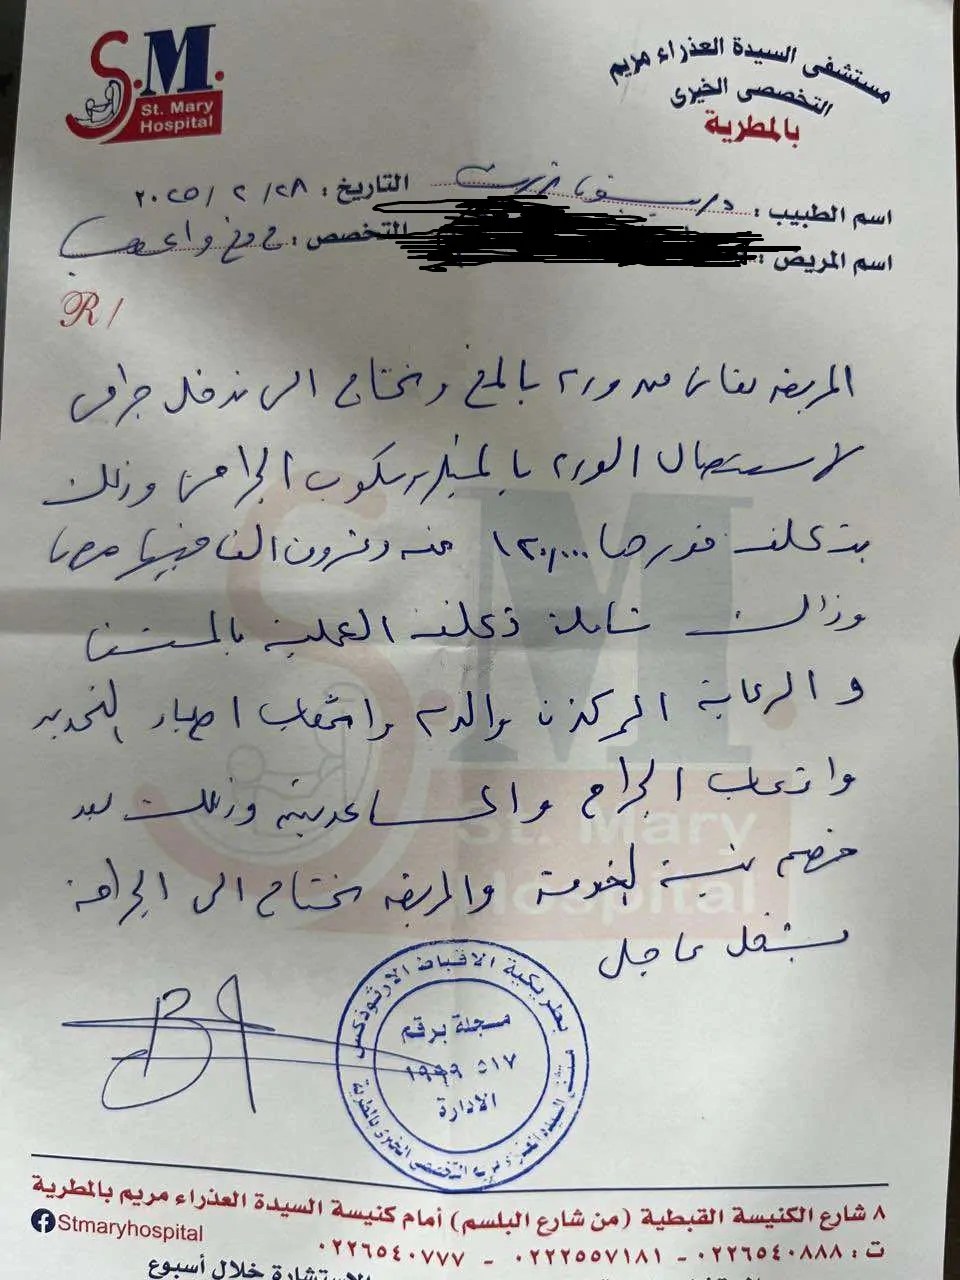 S.M.
St. Mary
Hospital
مستشفى السيدة العذراء مريم
التخصصى الخيرى
بالمطرية
اسم الطبيب : د/ التاريخ : ٢٨/ ٢ /٢٠٢٥
اسم المريض : التخصص : مخ و اعصاب
R/
المريضه تعانى من ورم بالمخ وتحتاج الى تدخل جراحى
لاستئصال الورم بالميكروسكوب الجراحى وذلك
بتكلفه قدرها ١٢٠,٠٠٠ مئه وعشرون الف جنيها مصريا
وذلك شاملة تكلفه العملية بالمستشفى
و الرعاية المركزة والدم واتعاب اطباء التخدير
واتعاب الجراح والمساعدين وذلك بعد
خصم نسبة الخدمة والمريضه تحتاج الى الجراحة
بشكل عاجل
بطريركية الاقباط الارثوذكس
مسجلة برقم
٥١٧ ١٩٩٩
الادارة
مستشفى السيدة العذراء مريم التخصصى الخيرى بالمطرية
٨ شارع الكنيسة القبطية (من شارع البلسم) أمام كنيسة السيدة العذراء مريم بالمطرية
ت : ٠٢٢٦٥٤٠٨٨٨ - ٠٢٢٢٥٥٧١٨١ - ٠٢٢٦٥٤٠٧٧٧
Stmaryhospital
الاستشارة خلال أسبوع